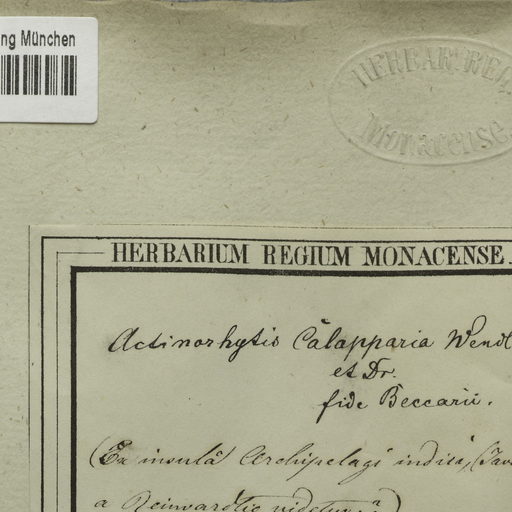 ng München
HERBAR. REG.
Monacense
HERBARIUM REGIUM MONACENSE.
Actinorhytis Calapparia Wendl
et Dr.
fide Beccarii.
(Ex insulâ Archipelagi indici, (Jav
a Reinwardtio videtur?)